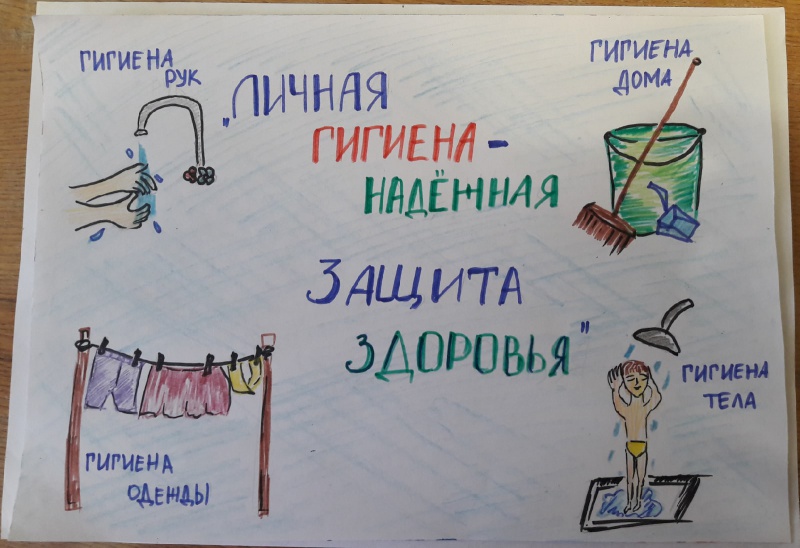 ГИГИЕНА
РУК
„ЛИЧНАЯ
ГИГИЕНА -
НАДЁЖНАЯ
ЗАЩИТА
ЗДОРОВЬЯ"
ГИГИЕНА
ДОМА
ГИГИЕНА
ОДЕЖДЫ
ГИГИЕНА
ТЕЛА